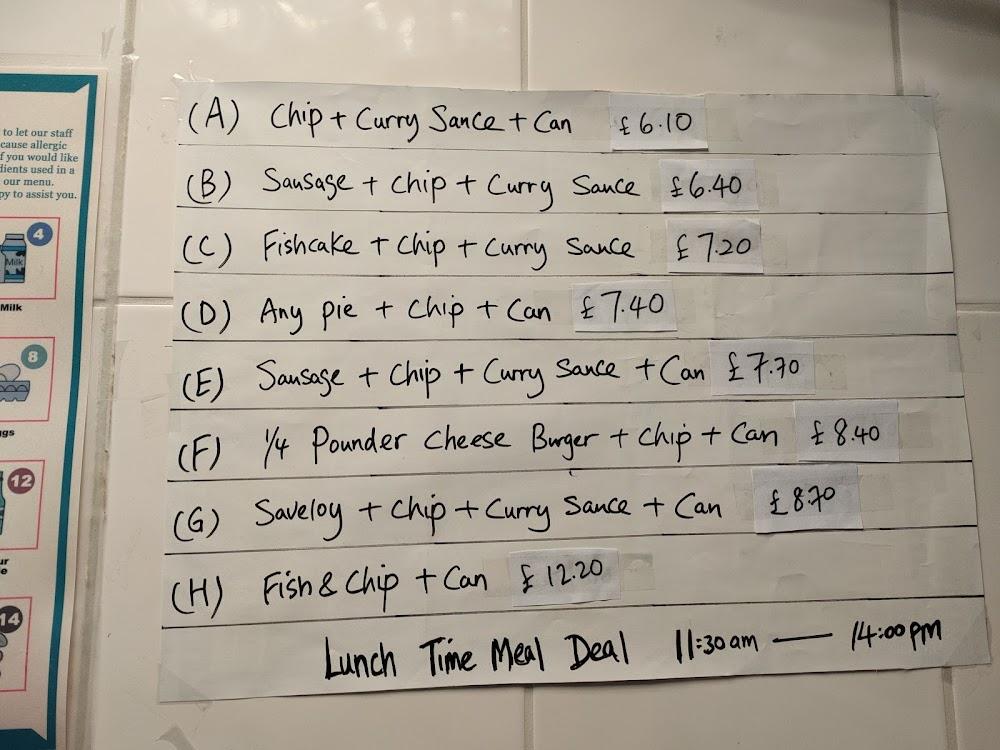 to let our staff
cause allergic
f you would like
dients used in a
our menu.
py to assist you.
4
Milk
Milk
8
gs
12
ur
e
14
(A) Chip + Curry Sauce + Can £6.10
(B) Sausage + Chip + Curry Sauce £6.40
(C) Fishcake + Chip + Curry Sauce £7.20
(D) Any pie + Chip + Can £7.40
(E) Sausage + Chip + Curry Sauce + Can £7.70
(F) 1/4 Pounder Cheese Burger + Chip + Can £8.40
(G) Saveloy + Chip + Curry Sauce + Can £8.70
(H) Fish & Chip + Can £12.20
Lunch Time Meal Deal 11:30am — 14:00pm